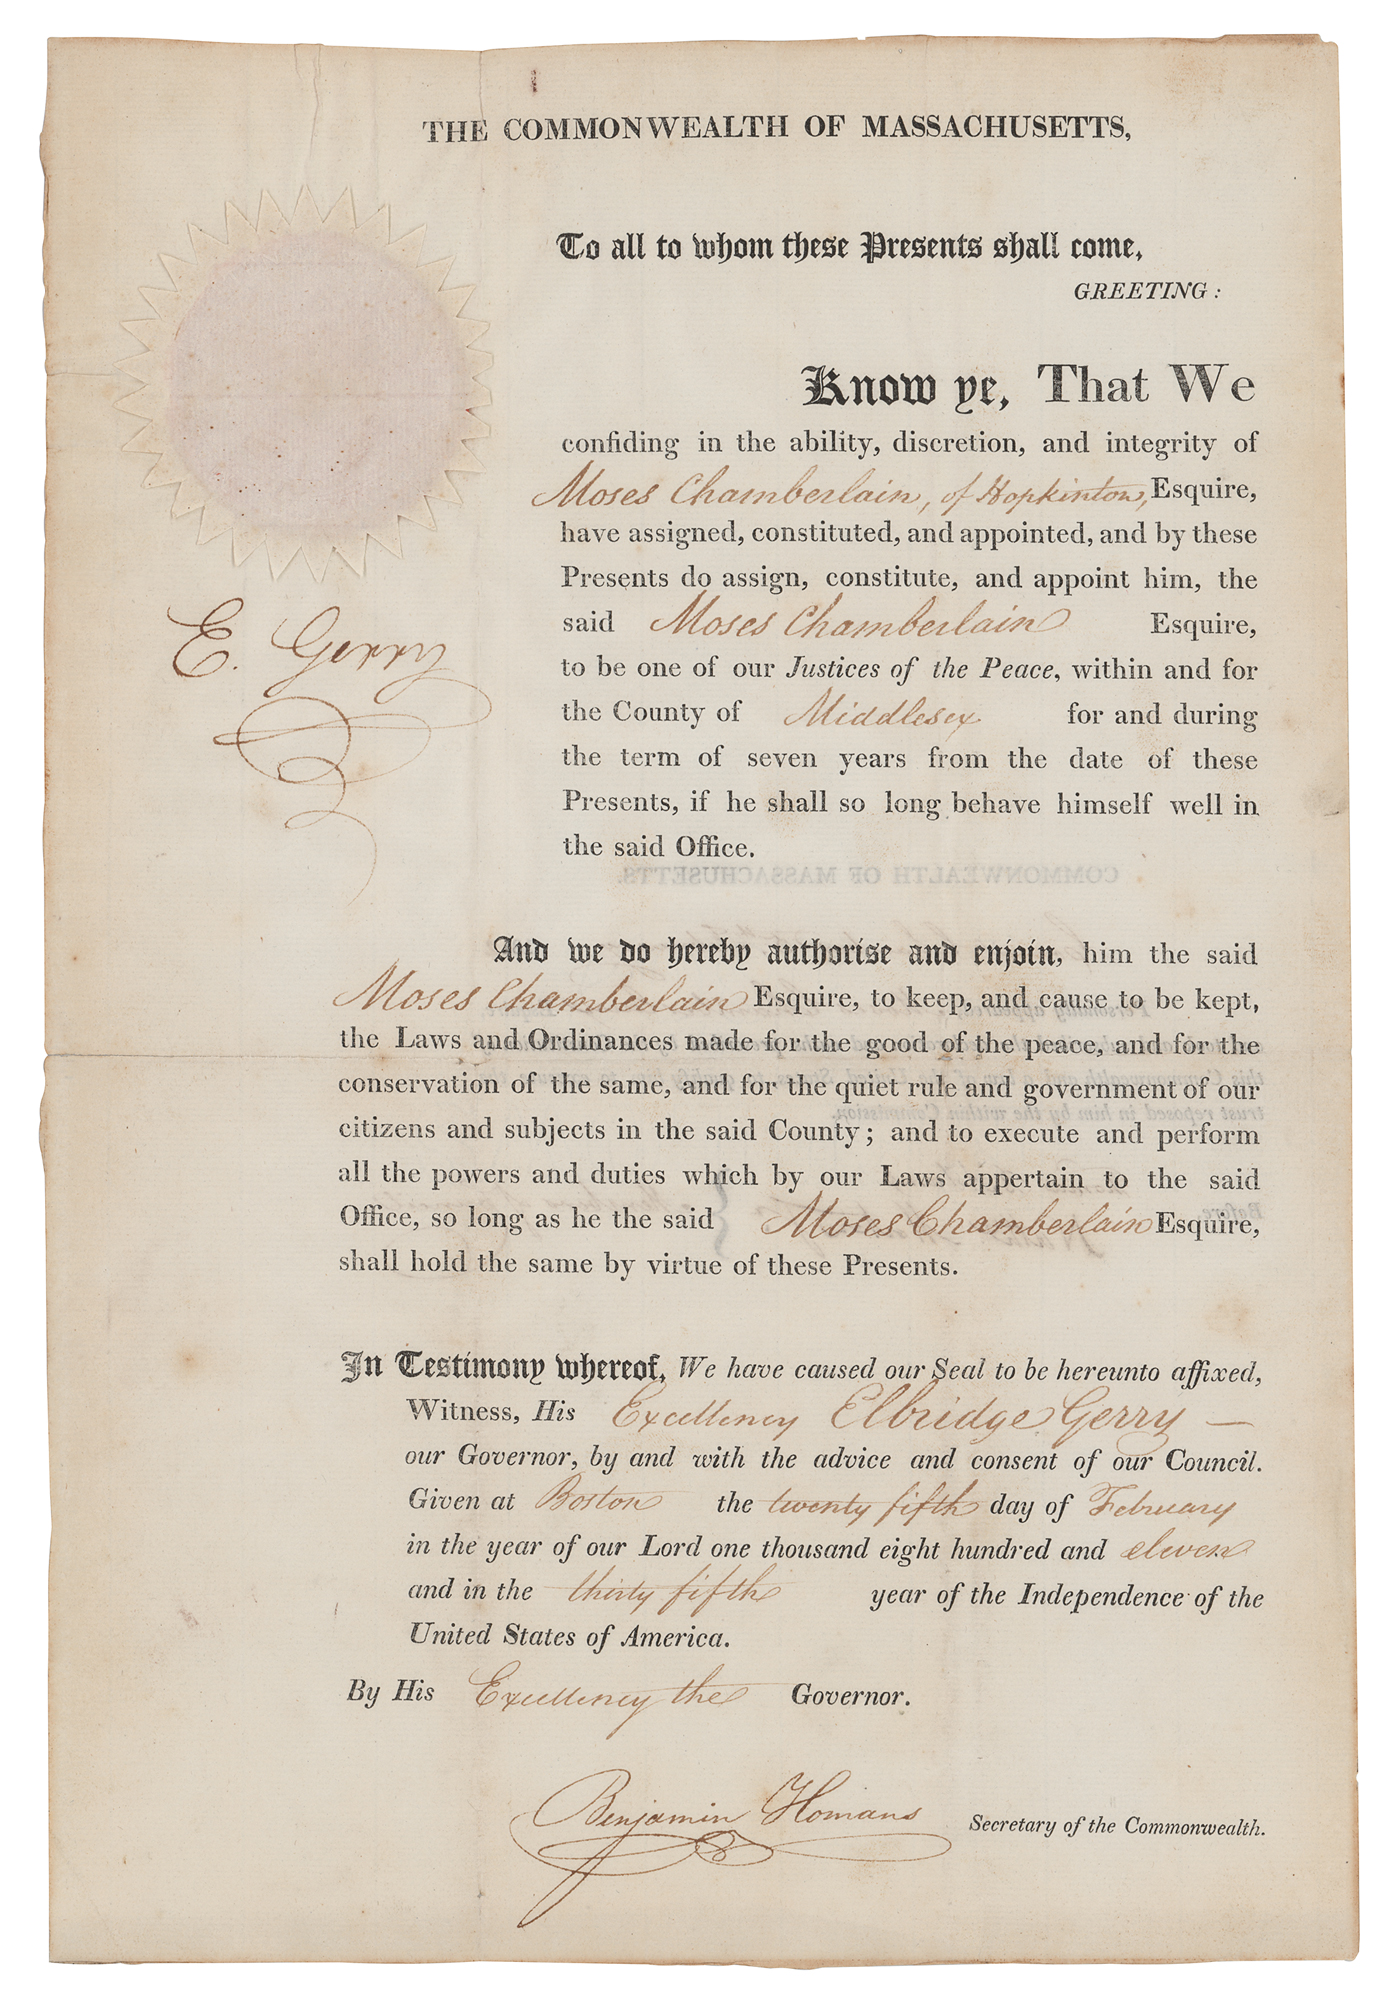 THE COMMONWEALTH OF MASSACHUSETTS,
To all to whom these Presents shall come,
GREETING :
Know ye, That We
confiding in the ability, discretion, and integrity of
Moses Chamberlain, of Hopkinton, Esquire,
have assigned, constituted, and appointed, and by these
Presents do assign, constitute, and appoint him, the
said Moses Chamberlain Esquire,
to be one of our Justices of the Peace, within and for
the County of Middlesex for and during
the term of seven years from the date of these
Presents, if he shall so long behave himself well in
the said Office.
E. Gerry
COMMONWEALTH OF MASSACHUSETTS.
And we do hereby authorise and enjoin, him the said
Moses Chamberlain Esquire, to keep, and cause to be kept,
the Laws and Ordinances made for the good of the peace, and for the
conservation of the same, and for the quiet rule and government of our
citizens and subjects in the said County; and to execute and perform
all the powers and duties which by our Laws appertain to the said
Office, so long as he the said Moses Chamberlain Esquire,
shall hold the same by virtue of these Presents.
In Testimony whereof, We have caused our Seal to be hereunto affixed,
Witness, His Excellency Elbridge Gerry —
our Governor, by and with the advice and consent of our Council.
Given at Boston the twenty fifth day of February
in the year of our Lord one thousand eight hundred and eleven
and in the thirty fifth year of the Independence of the
United States of America.
By His Excellency the Governor.
Benjamin Homans Secretary of the Commonwealth.